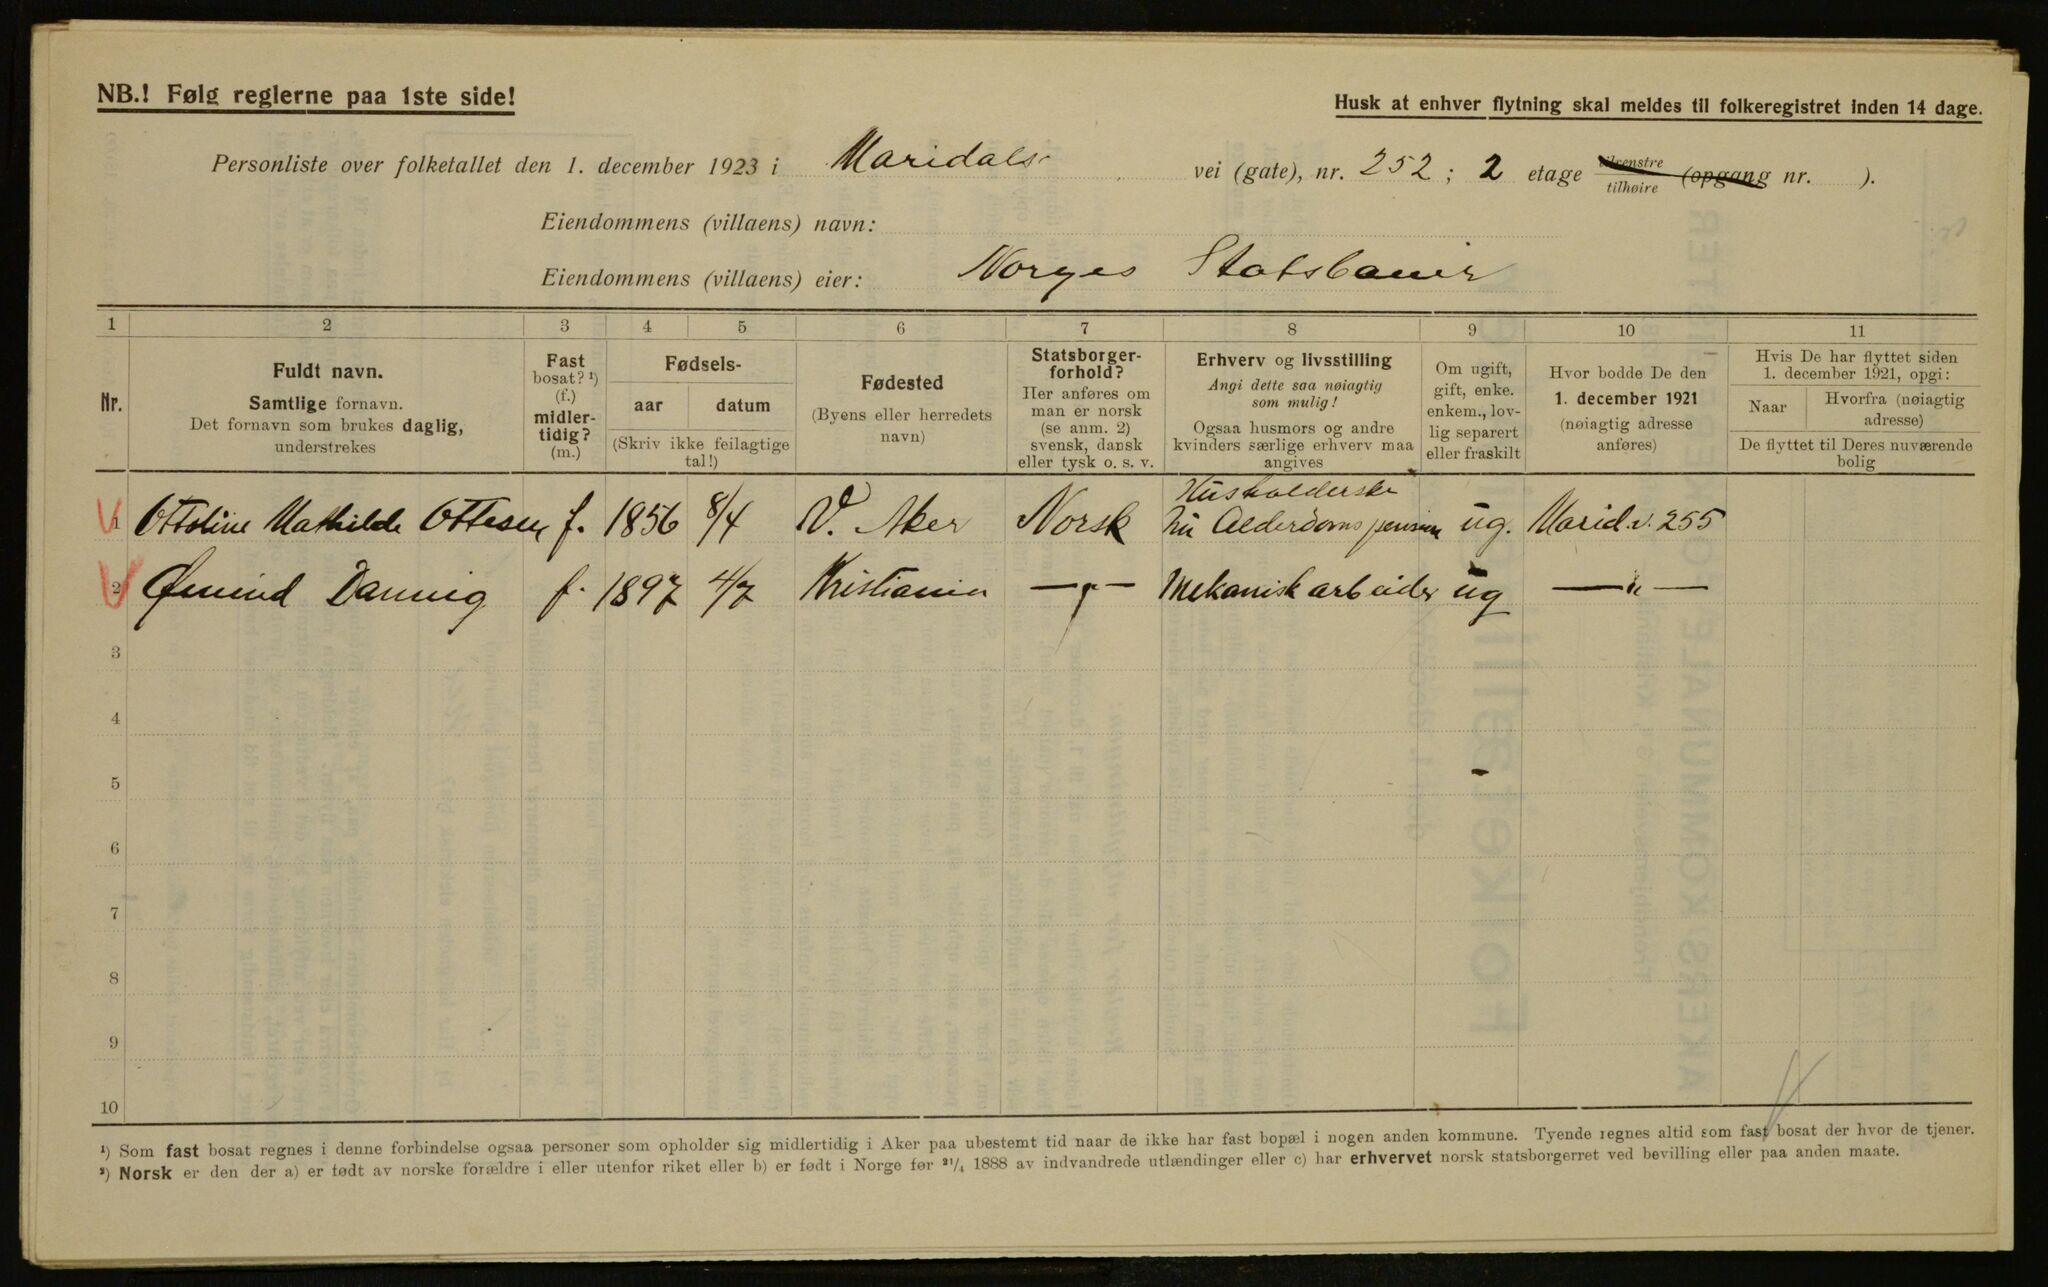 NB.! Følg reglerne paa 1ste side!
Husk at enhver flytning skal meldes til folkeregistret inden 14 dage.
Personliste over folketallet den 1. december 1923 i Maridals vei (gate), nr. 252; 2 etage tilvenstre tilhøire (opgang nr. ).
Eiendommens (villaens) navn:
Eiendommens (villaens) eier: Norges Statsbaner
1 2 3 4 5 6 7 8 9 10 11
Nr.
Fuldt navn.
Samtlige fornavn.
Det fornavn som brukes daglig,
understrekes
Fast
bosat? ¹)
(f.)
midler-
tidig?
(m.)
Fødsels-
aar datum
(Skriv ikke feilagtige
tal!)
Fødested
(Byens eller herredets
navn)
Statsborger-
forhold?
Her anføres om
man er norsk
(se anm. 2)
svensk, dansk
eller tysk o. s. v.
Erhverv og livsstilling
Angi dette saa nøiagtig
som mulig!
Ogsaa husmors og andre
kvinders særlige erhverv maa
angives
Om ugift,
gift, enke.
enkem., lov-
lig separert
eller fraskilt
Hvor bodde De den
1. december 1921
(nøiagtig adresse
anføres)
Hvis De har flyttet siden
1. december 1921, opgi:
Naar
Hvorfra (nøiagtig
adresse)
De flyttet til Deres nuværende
bolig
1 Ottoline Mathilde Ottesen f. 1856 8/4 V. Aker Norsk Husholderske nu Alderdoms pension ug. Marid.v. 255
2 Øivind Dannig f. 1897 4/7 Kristiania —"— Mekanisk arbeider ug —"—
3
4
5
6
7
8
9
10
¹) Som fast bosat regnes i denne forbindelse ogsaa personer som opholder sig midlertidig i Aker paa ubestemt tid naar de ikke har fast bopæl i nogen anden kommune. Tyende regnes altid som fast bosat der hvor de tjener.
²) Norsk er den der a) er født av norske forældre i eller utenfor riket eller b) er født i Norge før ²¹/₄ 1888 av indvandrede utlændinger eller c) har erhvervet norsk statsborgerret ved bevilling eller paa anden maate.